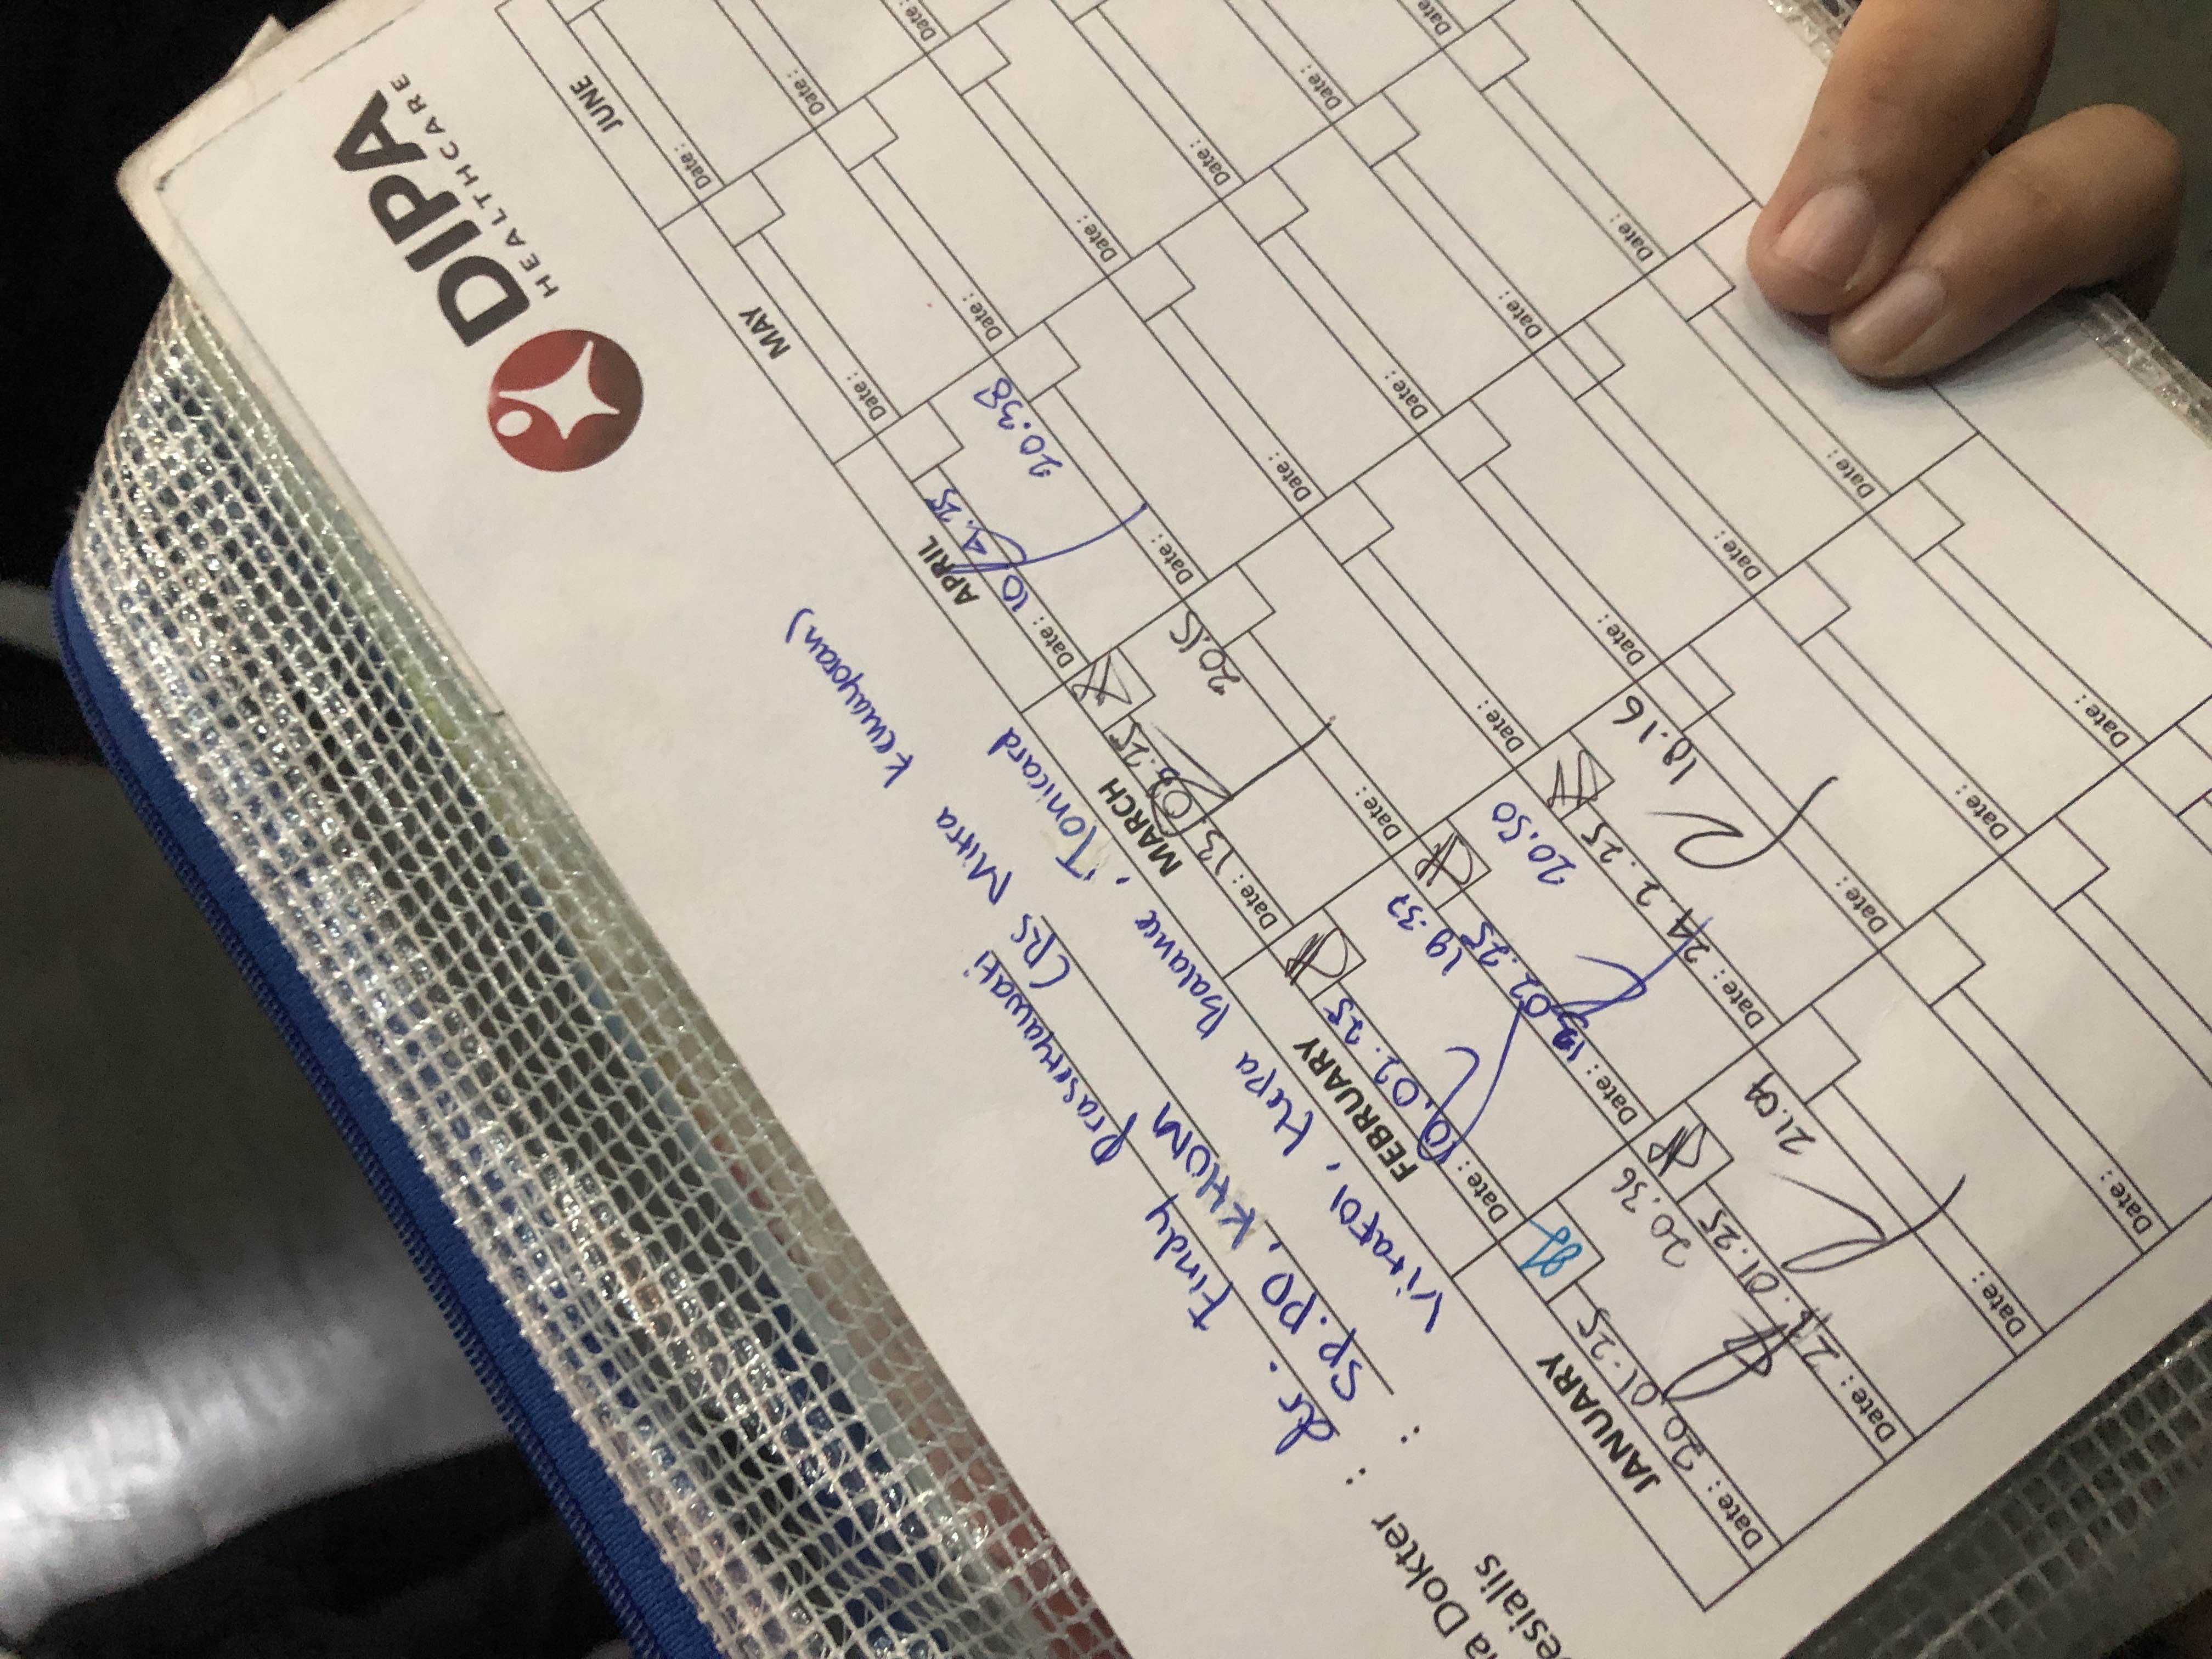 DIPA
HEALTHCARE
Dokter : dr. Findy Prasetyawati (RS Mitra Kemayoran)
esialis : Sp.PD, KHOM
Vitafol, Hepa balance, Tonicard
JANUARY FEBRUARY MARCH APRIL MAY JUNE
Date: 20.01.25 Date: 10.02.25 Date: 13.03.25 Date: 10.4.25 Date: Date:
20.36 19.37 20.15 20.38
Date: 23.01.25 Date: 13.02.25 Date: Date: Date: Date:
21.09 20.50
Date: Date: 24 2.25 Date: Date: Date: Date:
18.16
Date: Date: Date: Date: Date: Date:
Date: Date: Date: Date: